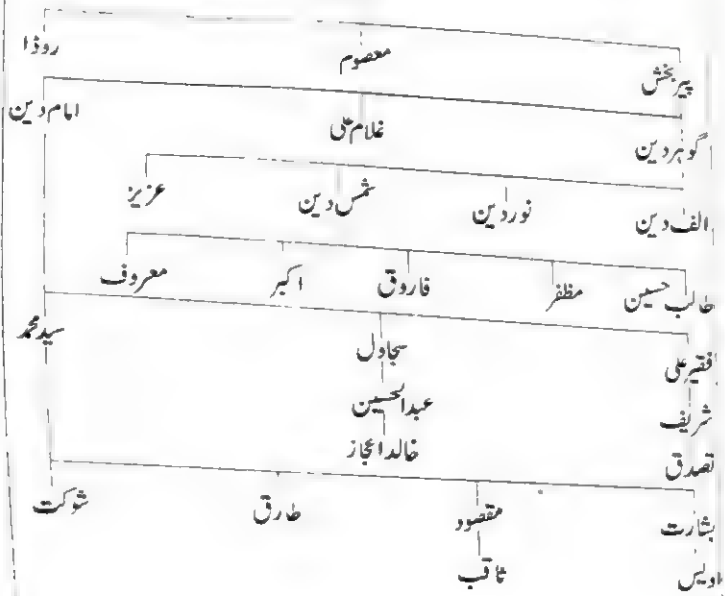 پیر بخش معصوم روڈا
گوہر دین غلام علی امام دین
الف دین نور دین شمس دین عزیز
طالب حسین مظفر فاروق اکبر معروف
فقیر علی سجاول سید محمد
شریف عبدالحسین
تصدق خالد اعجاز
بشارت مقصود طارق شوکت
اویس ثاقب